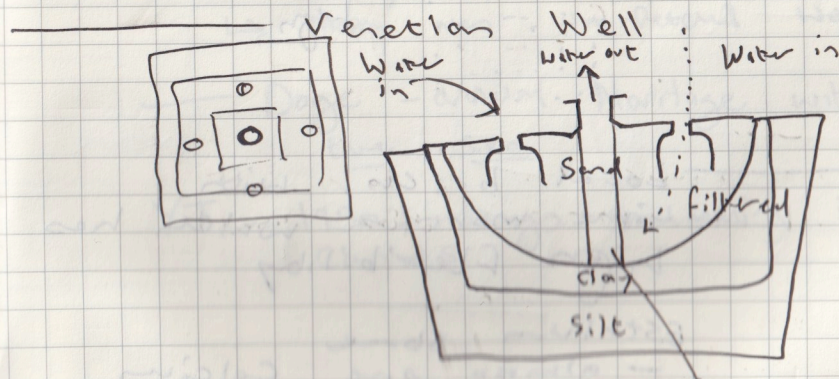 Venetian Well
Water in
Water out
Water in
Sand
filtered
Clay
Silt